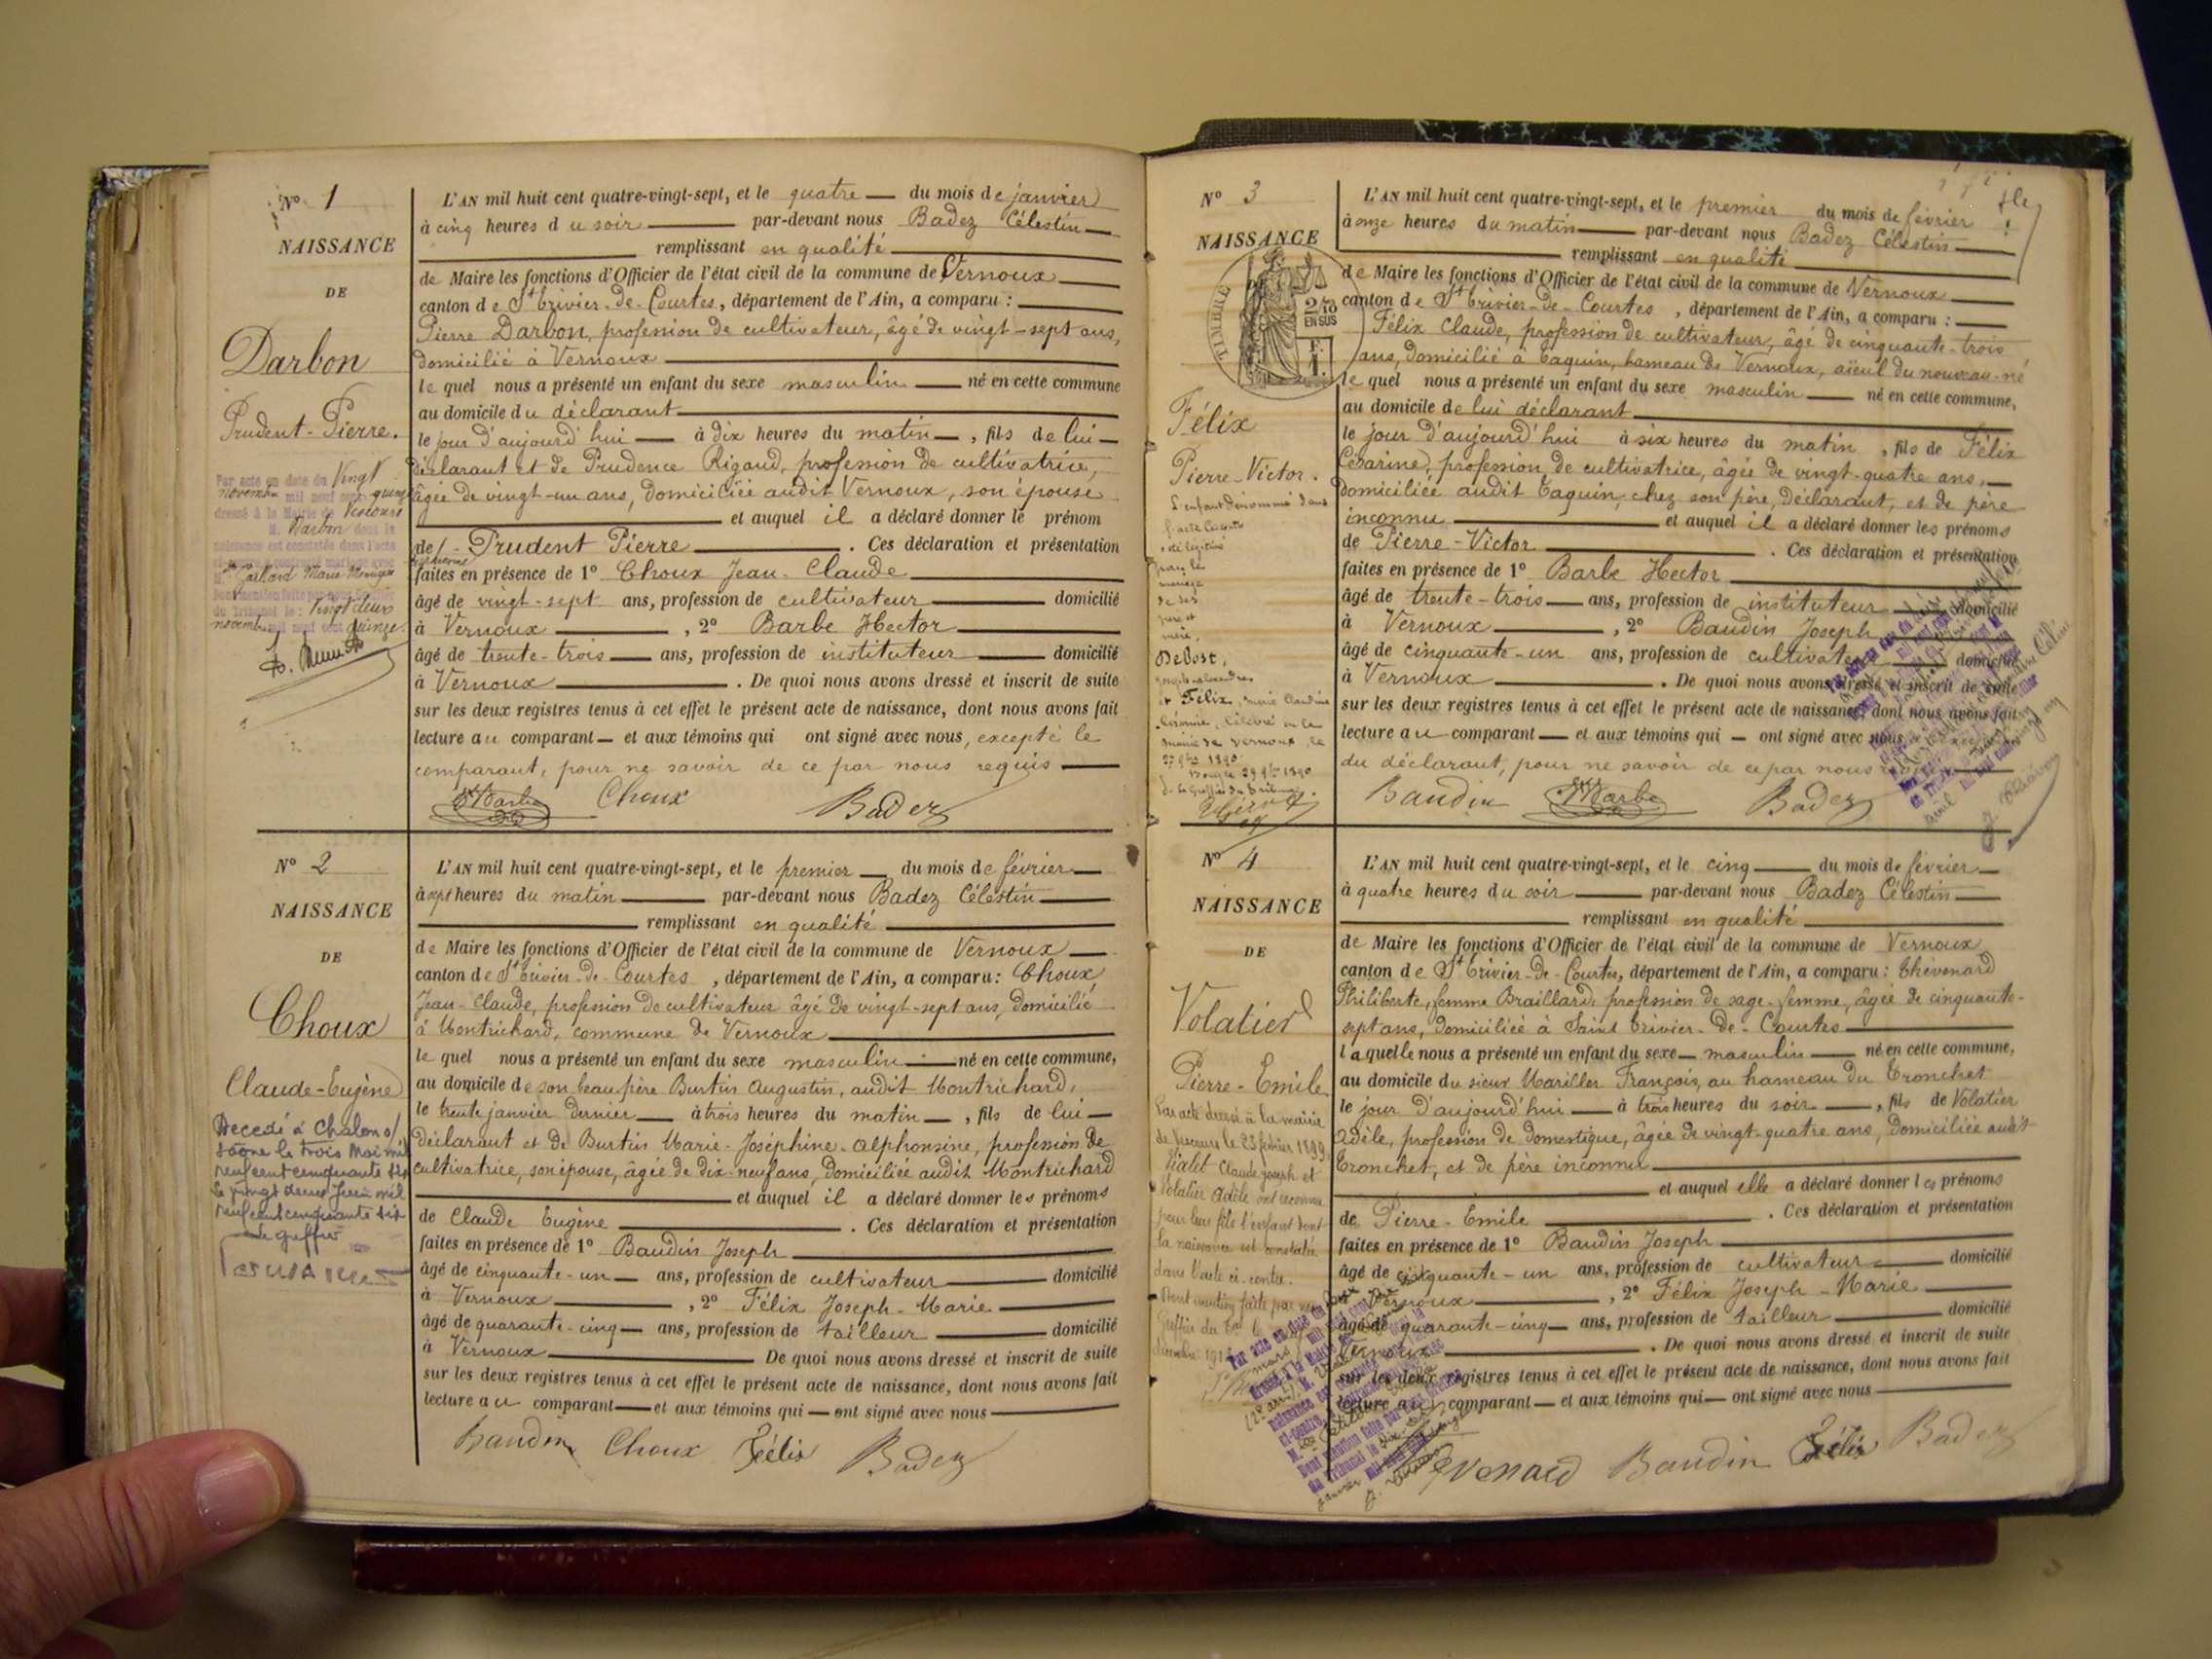 N° 1
NAISSANCE
DE
Darbon
Prudent-Pierre.
Par acte en date du Vingt
novembre mil neuf cent quinze
dressé à la Mairie de Vescours
M. Darbon dont la
naissance est constatée dans l'acte
Gaillard Marie
du Tribunal le : Vingt deux
novembre mil neuf cent quinze.
L'AN mil huit cent quatre-vingt-sept, et le quatre du mois de janvier
à cinq heures du soir par-devant nous Badez Célestin
remplissant en qualité
de Maire les fonctions d'Officier de l'état civil de la commune de Vernoux
canton de St Trivier-de-Courtes, département de l'Ain, a comparu :
Pierre Darbon, profession de cultivateur, âgé de vingt-sept ans,
domicilié à Vernoux
le quel nous a présenté un enfant du sexe masculin né en cette commune
au domicile du déclarant
le jour d'aujourd'hui à dix heures du matin, fils de lui
déclarant et de Prudence Rigaud, profession de cultivatrice,
âgée de vingt-un ans, domiciliée audit Vernoux, son épouse
et auquel il a déclaré donner le prénom
de Prudent Pierre . Ces déclaration et présentation
faites en présence de 1° Choux Jean-Claude
âgé de vingt-sept ans, profession de cultivateur domicilié
à Vernoux , 2° Barbe Hector
âgé de trente-trois ans, profession de instituteur domicilié
à Vernoux . De quoi nous avons dressé et inscrit de suite
sur les deux registres tenus à cet effet le présent acte de naissance, dont nous avons fait
lecture au comparant et aux témoins qui ont signé avec nous, excepté le
comparant, pour ne savoir de ce par nous requis
Barbe Choux Badez
N° 2
NAISSANCE
DE
Choux
Claude-Eugène
Décédé à Chalon s/
Saône le trois Mai mil
neuf cent cinquante six
Le vingt deux Juin mil
neuf cent cinquante six
Le greffier
L'AN mil huit cent quatre-vingt-sept, et le premier du mois de février
à sept heures du matin par-devant nous Badez Célestin
remplissant en qualité
de Maire les fonctions d'Officier de l'état civil de la commune de Vernoux
canton de St Trivier-de-Courtes, département de l'Ain, a comparu : Choux
Jean-Claude, profession de cultivateur âgé de vingt-sept ans, domicilié
à Montrichard, commune de Vernoux
le quel nous a présenté un enfant du sexe masculin né en cette commune,
au domicile de son beau père Burtin Augustin, audit Montrichard,
le trente janvier dernier à trois heures du matin, fils de lui
déclarant et de Burtin Marie-Joséphine-Alphonsine, profession de
cultivatrice, son épouse, âgée de dix-neuf ans, domiciliée audit Montrichard
et auquel il a déclaré donner les prénoms
de Claude Eugène . Ces déclaration et présentation
faites en présence de 1° Baudin Joseph
âgé de cinquante-un ans, profession de cultivateur domicilié
à Vernoux , 2° Félix Joseph-Marie
âgé de quarante-cinq ans, profession de tailleur domicilié
à Vernoux De quoi nous avons dressé et inscrit de suite
sur les deux registres tenus à cet effet le présent acte de naissance, dont nous avons fait
lecture au comparant et aux témoins qui ont signé avec nous
Baudin Choux Félix Badez
N° 3
NAISSANCE
TIMBRE
2/10
EN SUS
Félix
Pierre-Victor.
L'enfant dénommé dans
l'acte
légitimé
par le
mariage
de ses
père et
mère,
Debost,
et Félix, Marie Claudine
Césarine, célébré en la
mairie de Vernoux, le
27 9bre 1890
29 9bre 1890
L'AN mil huit cent quatre-vingt-sept, et le premier du mois de février
à onze heures du matin par-devant nous Badez Célestin
remplissant en qualité
de Maire les fonctions d'Officier de l'état civil de la commune de Vernoux
canton de St Trivier-de-Courtes , département de l'Ain, a comparu :
Félix Claude, profession de cultivateur, âgé de cinquante-trois
ans, domicilié à Taquin, hameau de Vernoux, aïeul du nouveau-né
le quel nous a présenté un enfant du sexe masculin né en cette commune,
au domicile de lui déclarant
le jour d'aujourd'hui à six heures du matin , fils de Félix
Césarine, profession de cultivatrice, âgée de vingt-quatre ans,
domiciliée audit Taquin, chez son père, déclarant, et de père
inconnu et auquel il a déclaré donner les prénoms
de Pierre-Victor . Ces déclaration et présentation
faites en présence de 1° Barbe Hector
âgé de trente-trois ans, profession de instituteur domicilié
à Vernoux , 2° Baudin Joseph
âgé de cinquante-un ans, profession de cultivateur domicilié
à Vernoux . De quoi nous avons dressé et inscrit de suite
sur les deux registres tenus à cet effet le présent acte de naissance, dont nous avons fait
lecture au comparant et aux témoins qui ont signé avec nous
du déclarant, pour ne savoir de ce par nous
Baudin Barbe Badez
N° 4
NAISSANCE
DE
Volatier
Pierre-Emile
Par acte dressé à la mairie
de Vescours le 23 février 1899
Vialet Claude Joseph et
Volatier Adèle ont reconnu
pour leur fils l'enfant dont
la naissance est constatée
dans l'acte ci-contre.
Dont mention faite par
L'AN mil huit cent quatre-vingt-sept, et le cinq du mois de février
à quatre heures du soir par-devant nous Badez Célestin
remplissant en qualité
de Maire les fonctions d'Officier de l'état civil de la commune de Vernoux
canton de St Trivier-de-Courtes, département de l'Ain, a comparu : Thévenard
Philiberte, femme Braillard, profession de sage-femme, âgée de cinquante-
sept ans, domiciliée à Saint Trivier-de-Courtes
laquelle nous a présenté un enfant du sexe masculin né en cette commune,
au domicile du sieur Mariller François, au hameau du Tronchet
le jour d'aujourd'hui à trois heures du soir , fils de Volatier
Adèle, profession de domestique, âgée de vingt-quatre ans, domiciliée audit
Tronchet, et de père inconnu
et auquel elle a déclaré donner les prénoms
de Pierre-Emile . Ces déclaration et présentation
faites en présence de 1° Baudin Joseph
âgé de cinquante-un ans, profession de cultivateur domicilié
à Vernoux , 2° Félix Joseph-Marie
âgé de quarante-cinq ans, profession de tailleur domicilié
Vernoux . De quoi nous avons dressé et inscrit de suite
sur les deux registres tenus à cet effet le présent acte de naissance, dont nous avons fait
lecture au comparant et aux témoins qui ont signé avec nous
Baudin Félix Badez